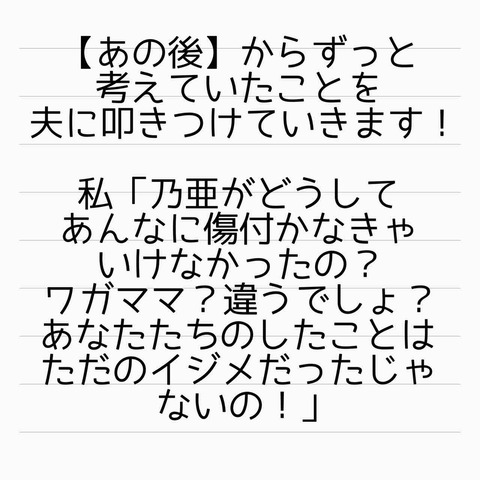 【あの後】からずっと
考えていたことを
夫に叩きつけていきます！
私「乃亜がどうして
あんなに傷付かなきゃ
いけなかったの？
ワガママ？違うでしょ？
あなたたちのしたことは
ただのイジメだったじゃ
ないの！」